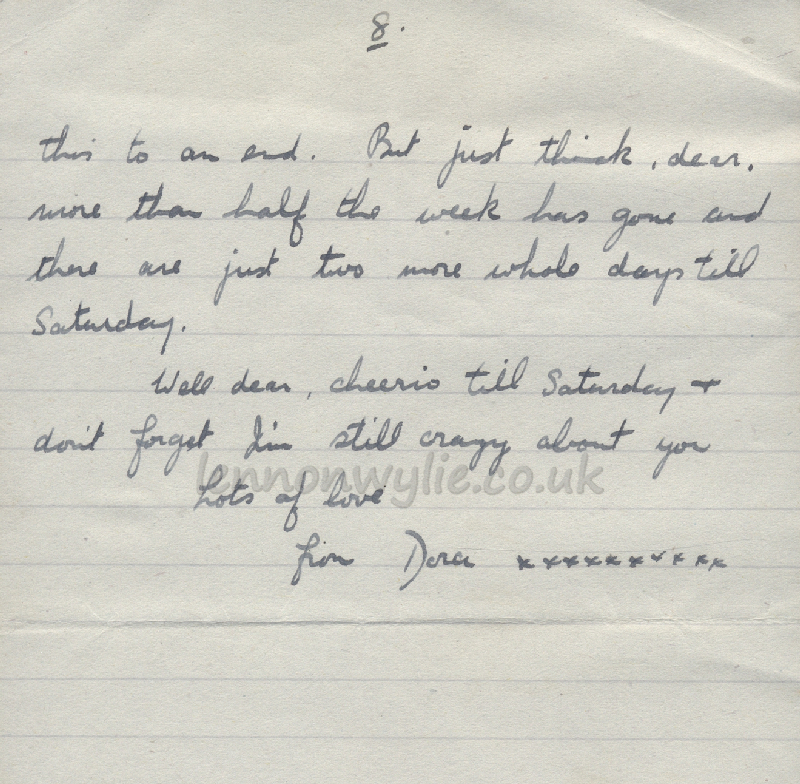 8.
this to an end. But just think, dear,
more than half the week has gone and
there are just two more whole days till
Saturday.
Well dear, cheerio till Saturday +
don't forget I'm still crazy about you
lennonwylie.co.uk
Lots of love
from Dora xxxxxxxxxx